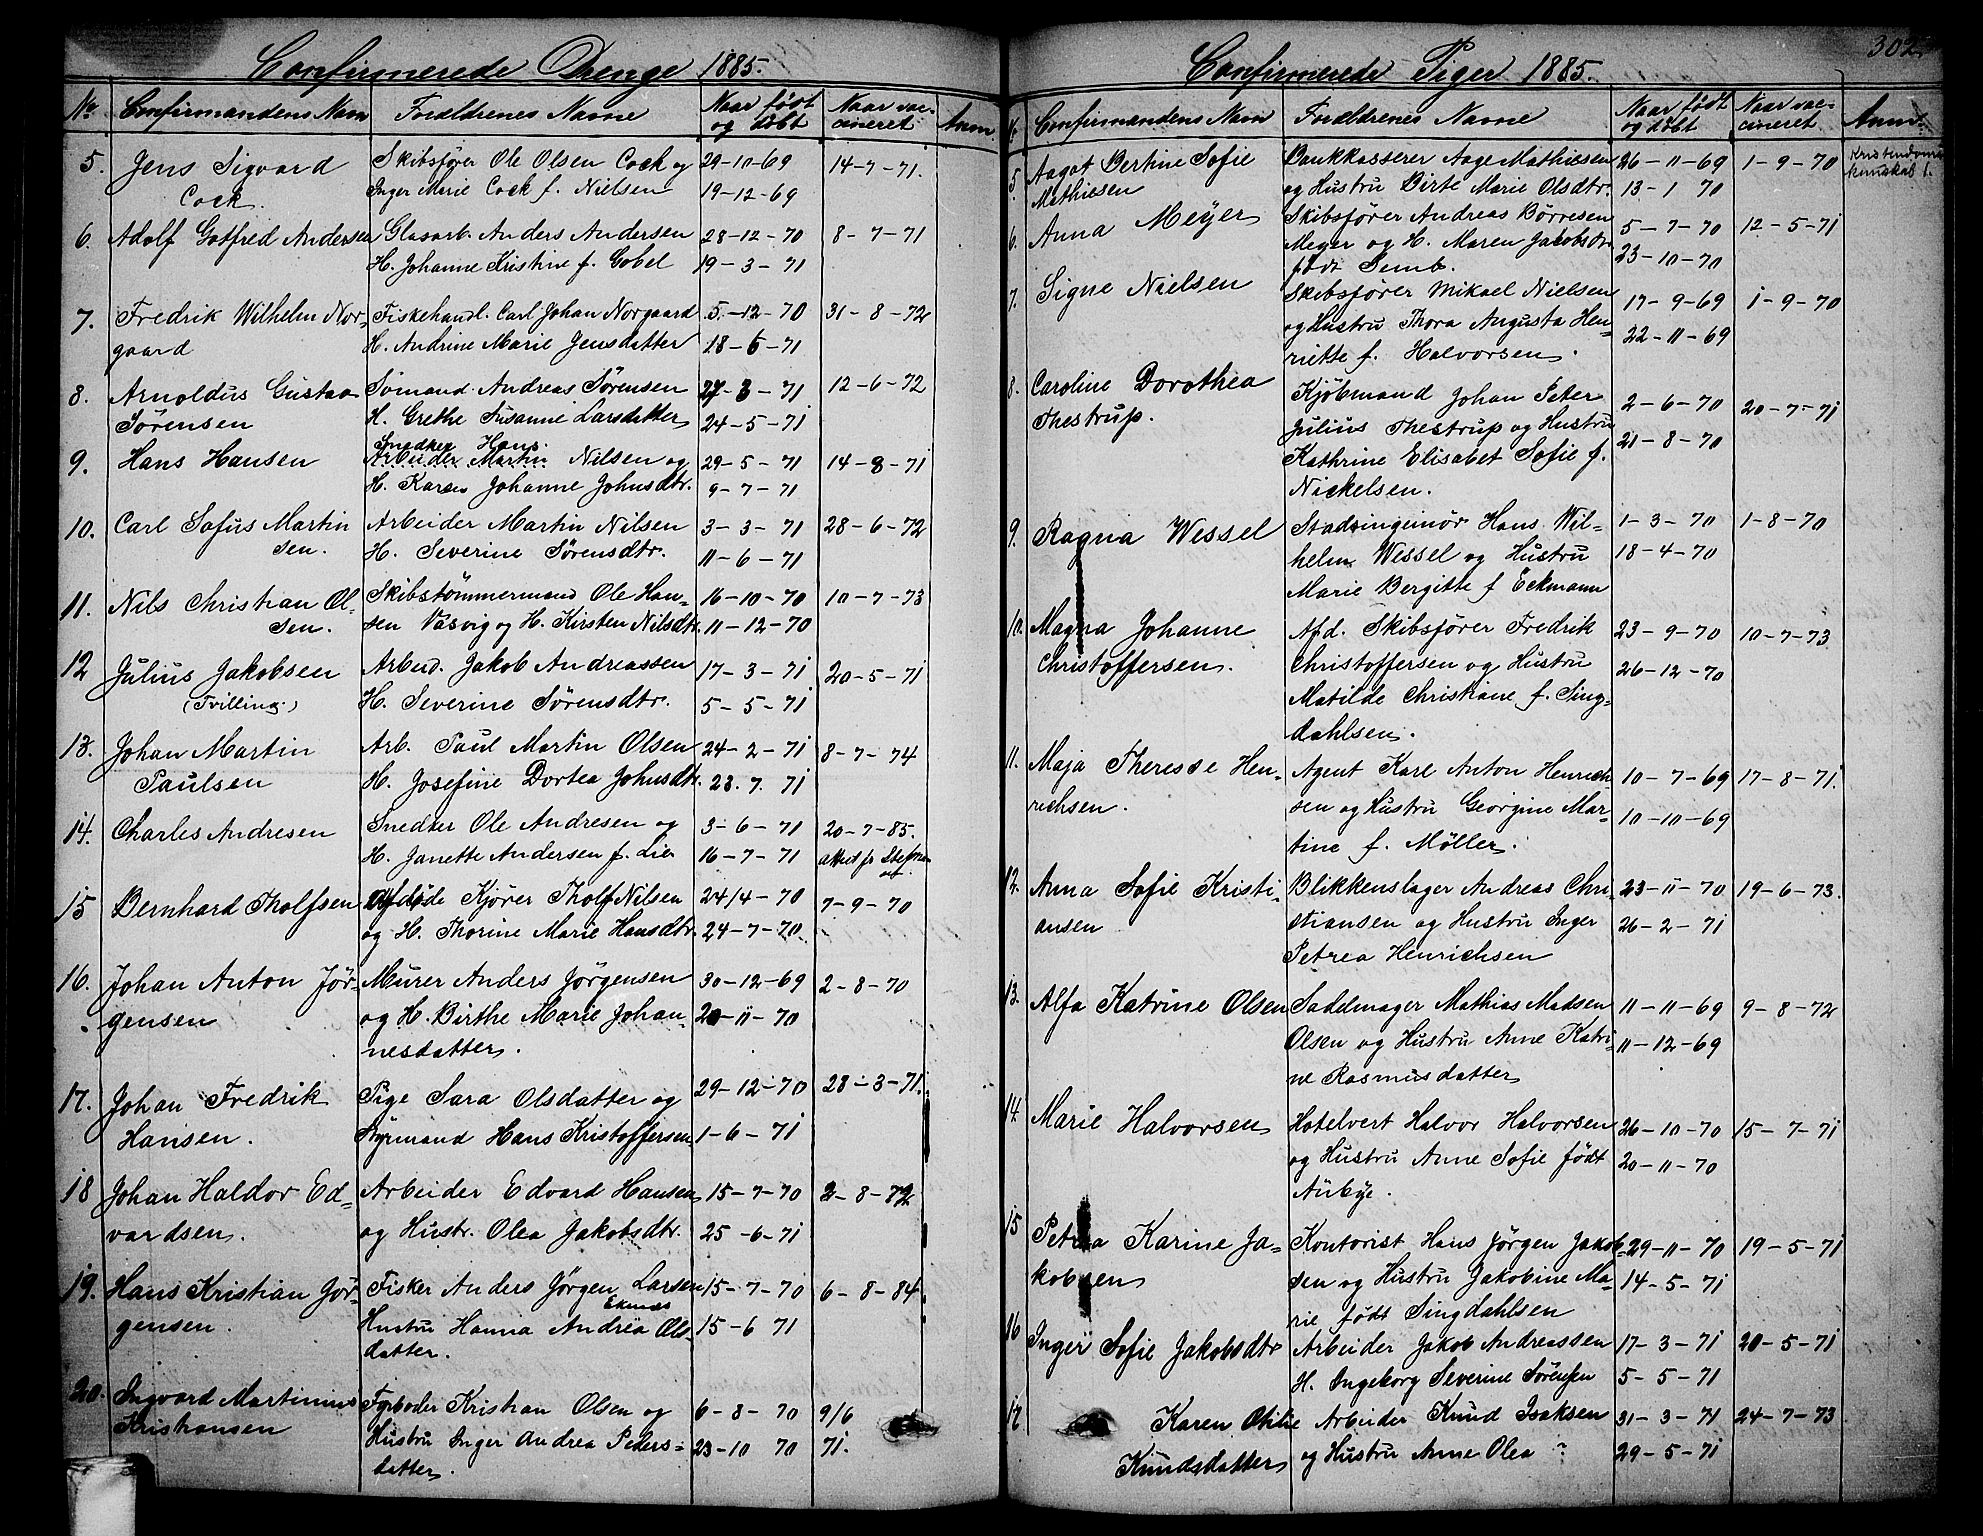 Confirmerede Drenge 1885.
No Confirmandens Navn Forældrenes Navne Naar født og døbt Naar vaccineret Anm
5. Jens Sigvard Skibsfører Ole Olsen Cock og 29-10-69 14-7-71.
Cock. Inger Marie Cock f. Nielsen 19-12-69
6. Adolf Gotfred Andersen Glasarb. Anders Andersen 28-12-70 8-7-71
H. Johanne Kristine f. Gobel 19-3-71
7. Fredrik Wilhelm Nor- Fiskehandl. Carl Johan Norgaard 5.-12-70 31-8-72
gaard H. Andrine Marie Jensdatter 18-6-71
8. Arnoldus Gustav Sømand Andreas Sørensen 27-3-71 12-6-72
Sørensen H. Grethe Susanne Larsdatter 24-5-71
Snedker Hans
9. Hans Hansen Arbeider Martin Nilsen og 29-5-71 14-8-71
H. Karen Johanne Johnsdtr. 9-7-71
10. Carl Sofus Martin Arbeider Martin Nilsen 3-3-71 28-6-72
sen. H. Severine Sørensdtr. 11-6-71
11. Nils Christian Ol- Skibstømmermand Ole Han- 16-10-70 10-7-73
sen. sen Vasvig og H. Kirsten Nilsdtr. 11-12-70
12 Julius Jakobsen Arbeid. Jakob Andreassen 17-3-71 20-5-71
(Tvilling) H. Severine Sørensdtr. 5-5-71
13. Johan Martin Arb. Paul Martin Olsen 24-2-71 8-7-74
Paulsen H. Josefine Dortea Johnsdtr. 23.7.71
14. Charles Andresen Snedker Ole Andresen og 3-6-71 20-7-85.
H. Janette Andersen f. Lie 16-7-71 attest fr
15 Bernhard Tholfsen Afdøde Kjører Tholf Nilsen 24/4-70 7-9-70
og H. Thorine Marie Hansdtr. 24-7-70.
16. Johan Anton Jør- Murer Anders Jørgensen 30-12-69 2-8-70
gensen og H. Birthe Marie Johan- 20-11-70
nesdatter.
17. Johan Fredrik Pige Sara Olsdatter og 29-12-70 28-3-71.
Hansen. Styrmand Hans Kristoffersen 1-6-71
18 Johan Haldor Ed- Arbeider Edvard Hansen 15-7-70 2-8-72
vardsen. og Hustr. Olea Jakobsdtr. 25-6-71
19. Hans Kristian Jør- Fisker Anders Jørgen Larsen 15-7-70 6-8-84
Eknæs
gensen. Hustru Hanna Andrea Ols- 15-6 71
datter.
20. Ingvard Martinius Fyrbøder Kristian Olsen og 6-8-70 9/6
Kristiansen Hustru Inger Andrea Peders- 23-10 70 71.
datter.
302
Confirmerede Piger 1885.
Confirmandens Navn Forældrenes Navne Naar født og døbt Naar vaccineret Anm.
5. Aagot Bertine Sofie Bankkasserer Aage Mathiesen 26-11-69 1-9-70 Kristendoms
Mathiesen og Hustru Birte Marie Olsdtr. 13-1 70 kundskab 1.
6. Anna Meyer Skibsfører Andreas Børresen 5-7-70 12-5-71
Meyer og H. Maren Jakobsdtr 23-10-70
født Semb.
7. Signe Nielsen Skibsfører Mikael Nielsen 17-9-69 1-9-70
og Hustru Thora Augusta Hen- 22-11-69
riette f. Halvorsen.
8. Caroline Dorothea Kjøbmand Johan Peter 2-6-70 20-7-71
Thestrup. Julius Thestrup og Hustru 21-8-70
Kathrine Elisabet Sofie f.
Nickelsen.
9. Ragna Wessel Stadsingeniør Hans Wil- 1-3-70 1-8-70
helm Wessel og Hustru 18-4-70
Marie Bergitte f Eckmann
10. Magna Johanne Afd. Skibsfører Fredrik 23-9-70 10-7-73
Christoffersen. Christoffersen og Hustru 26-12-70
Matilde Christiane f. Sing-
dahlsen.
11. Maja Therese Hen- Agent Karl Anton Henrich- 10-7-69 17-8-71.
richsen. sen og Hustru Georgine Mar- 10-10-69
tine f. Møller.
12. Anna Sofie Kristi- Blikkenslager Andreas Chri- 23-11-70 19-6-73.
ansen stiansen og Hustru Inger 26-2-71
Petrea Henrichsen
13. Alfa Katrine Olsen Saddelmager Mathias Madsen 11-11-69 9-8-72
Olsen og Hustru Anne Katri- 11-12-69
ne Rasmusdatter
14. Marie Halvorsen Hotelvert Halvor Halvorsen 26-10-70 15-7-71
og Hustru Anne Sofie født 20-11-70
Aubye.
15 Petrea Karine Ja- Kontorist Hans Jørgen Jakob- 29-11-70 19-5-71
kobsen sen og Hustru Jakobine Ma- 14-5-71
rie født Singdahlsen
16 Inger Sofie Jakobsdtr Arbeider Jakob Andreassen 17-3-71 20-5-71
H. Ingeborg Severine Sørensen 5-5-71
17 Karen Otilie Arbeider Knud Isaksen 31-3-71 24-7-73
Knudsdatter og Hustru Anne Olea ? 29-5-71